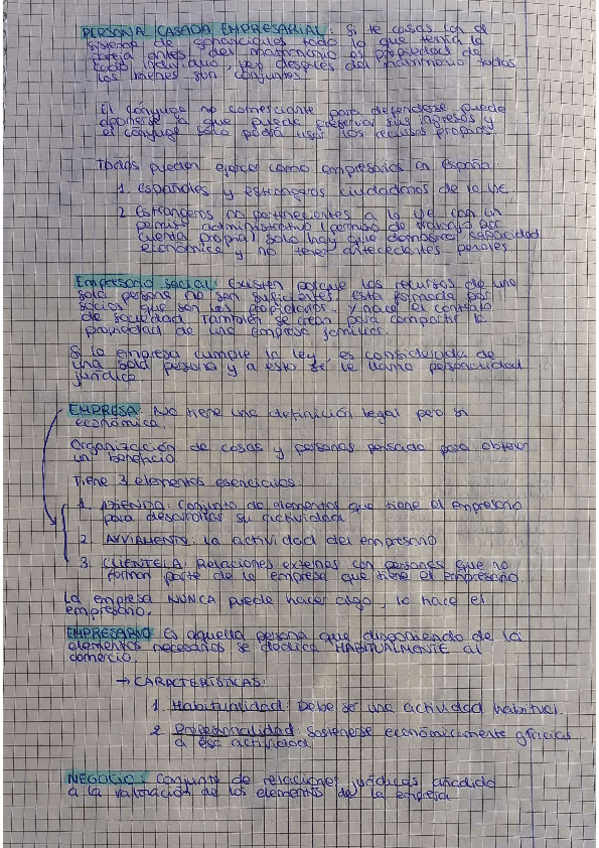 PERSONA CASADA EMPRESARIAL: Si te casas con el
sistema de gananciales todo lo que tenía la
pareja antes del matrimonio es propiedad de
cada individuo, pero después del matrimonio todos
los bienes son conjuntos.
El cónyuge no comerciante para defenderse puede
oponerse a que pueda preservar sus ingresos y
el cónyuge solo podrá usar los recursos propios
Todos pueden ejercer como empresarios en españa:
1. españoles y estrangeros ciudadanos de la UE
2 Estrangeros no pertenecientes a la UE con un
permiso administrativo (permiso de trabajo por
cuenta propia) solo hay que demostrar capacidad
económica y no tener antecedentes penales
Empresario social: Existen porque los recursos de una
sola persona no son suficientes, esta formada por
socios que son los propietarios, y nace el contrato
de sociedad. También se crean para compartir la
propiedad de una empresa familiar.
Si la empresa cumple la ley, es considerada de
una sola persona y a esto se le llama personalidad
jurídica.
EMPRESA: No tiene una definición legal pero si
económica.
Organización de cosas y personas pensado para obtener
un beneficio
Tiene 3 elementos esenciales
1. AZIENDA: Conjunto de elementos que tiene el empresario
para desarrollar su actividad
2 AVVIAMENTO: la actividad del empresario
3. CLIENTELA: Relaciones externas con personas que no
forman parte de la empresa que tiene el empresario.
La empresa NUNCA puede hacer algo, lo hace el
empresario.
EMPRESARIO: Es aquella persona que disponiendo de los
elementos necesarios se dedica HABITUALMENTE al
comercio.
→ CARACTERÍSTICAS:
1. Habitualidad: Debe ser una actividad habitual.
2 Profesionalidad: Sostenerse económicamente gracias
a esa actividad
NEGOCIO: Conjunto de relaciones jurídicas añadida
a la valoración de los elementos de la empresa